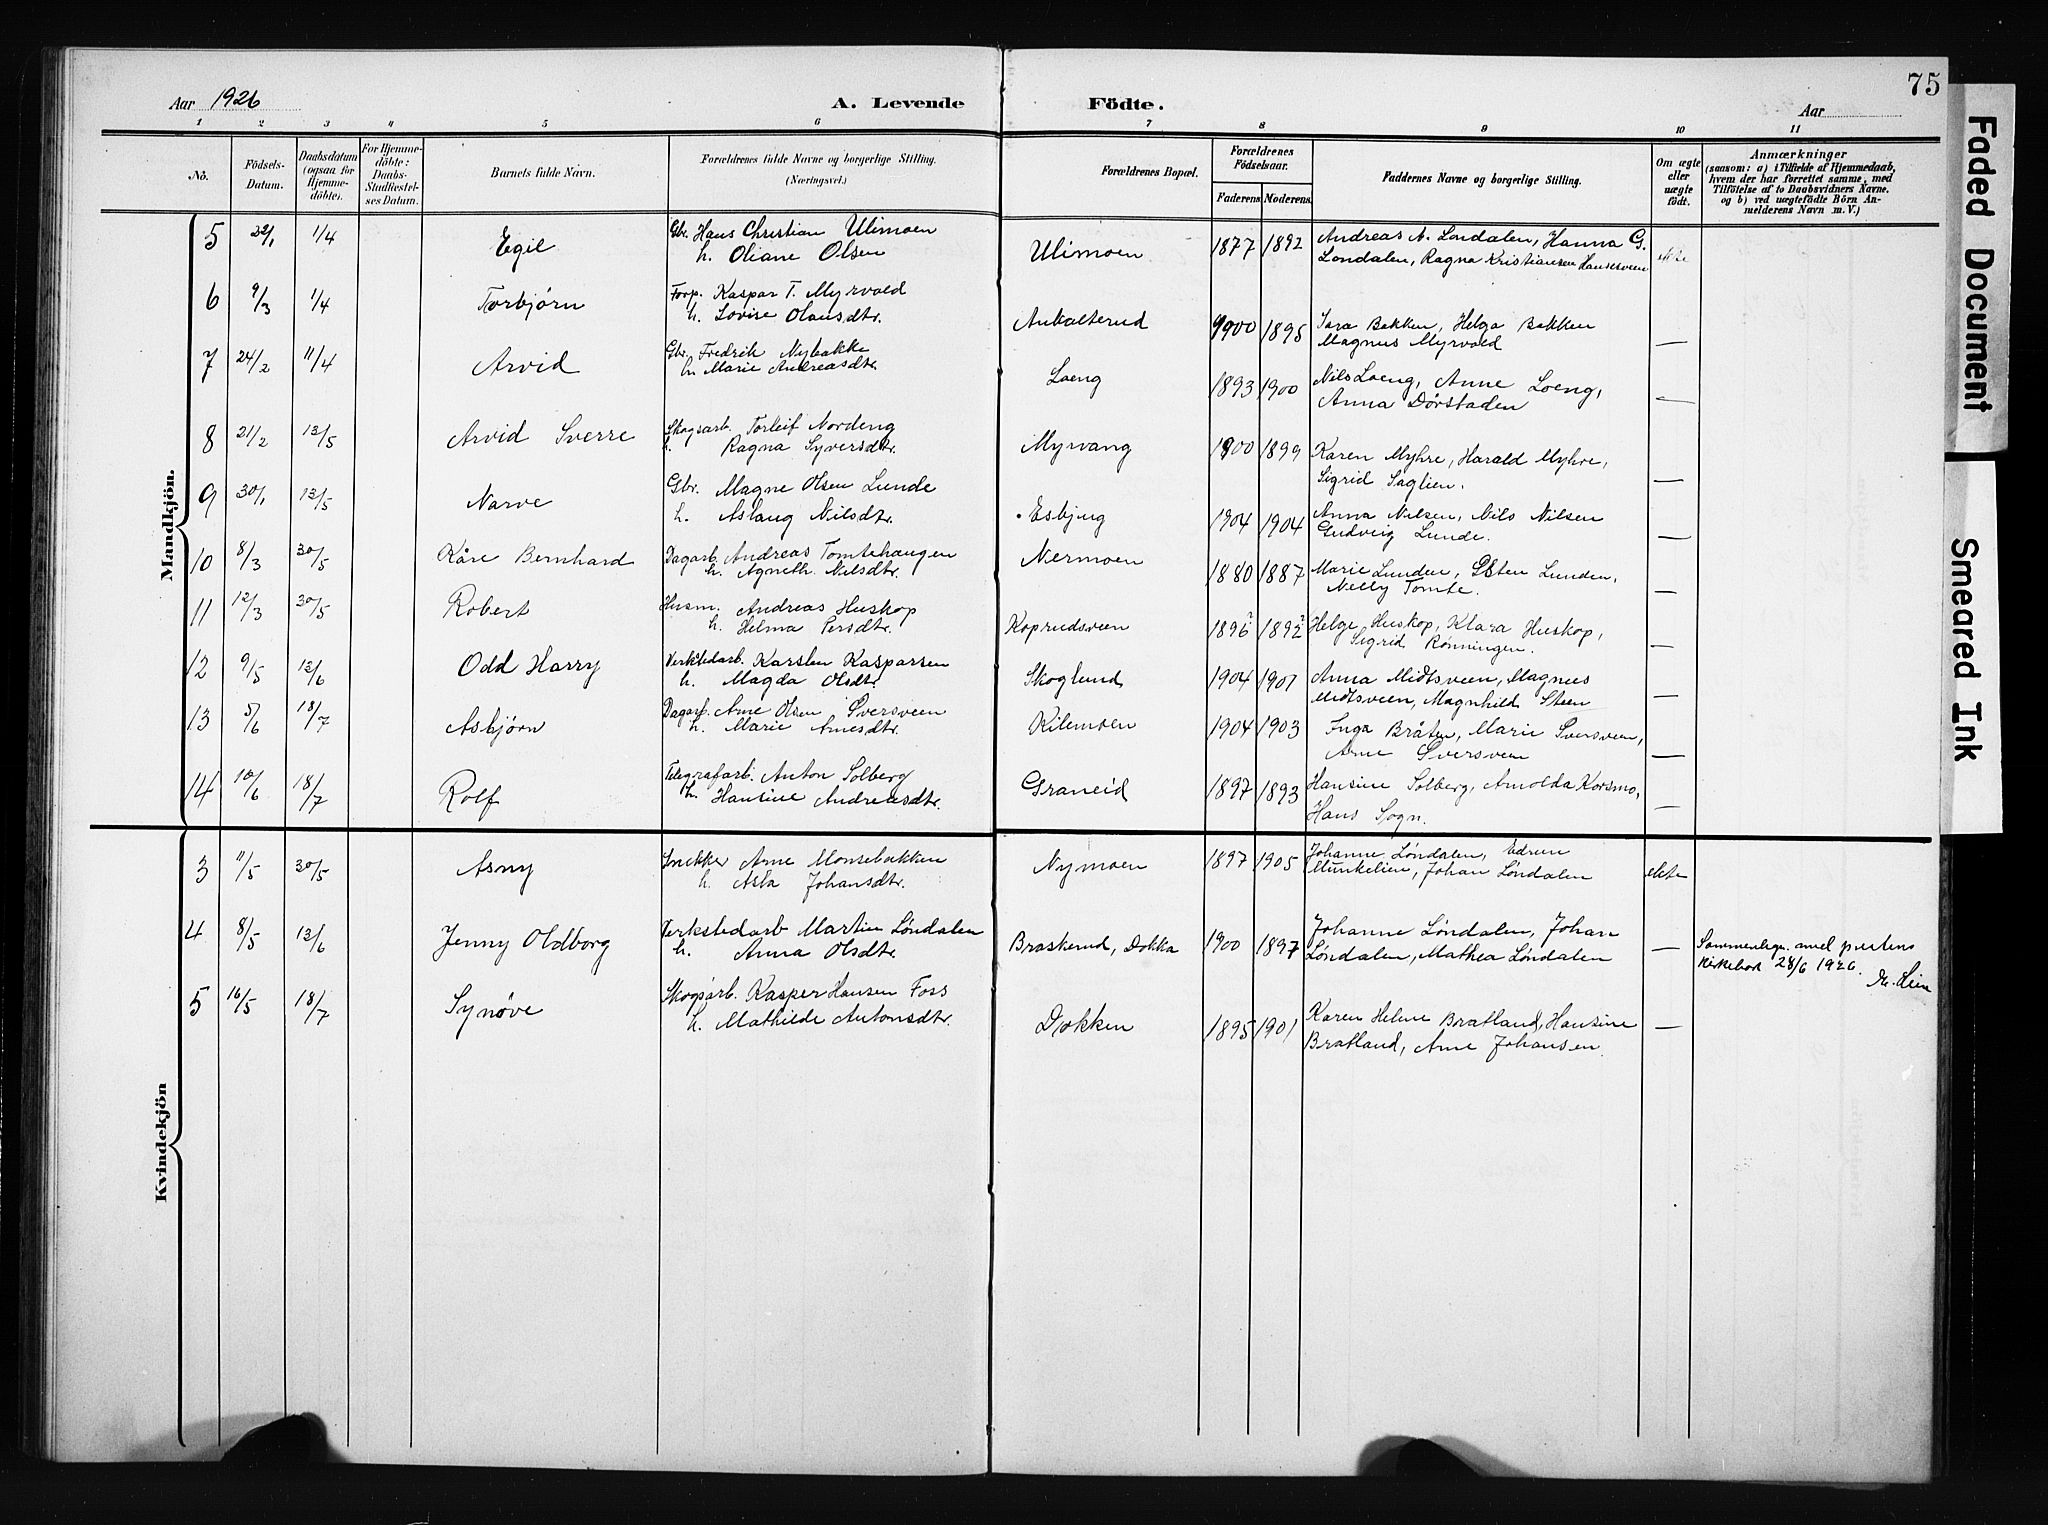 75
Aar 1926 A. Levende Födte. Aar
1 2 3 4 5 6 7 8 9 10 11
No. Födsels-Datum. Daabsdatum (ogsaa for Hjemmedöbte). For Hjemmedöbte: Daabs-Stadfæstelses Datum. Barnets fulde Navn. Forældrenes fulde Navne og borgerlige Stilling. (Næringsvei.) Forældrenes Bopæl. Forældrenes Födselsaar. Faderens Moderens Faddernes Navne og borgerlige Stilling. Om ægte eller uægte födt. Anmærkninger (saasom: a) i Tilfælde af Hjemmedaab, hvem der har forrettet samme, med Tilföielse af to Daabsvidners Navne. og b) ved uægtefödte Börn Anmelderens Navn m. V.)
Mandkjön.
5 22/1 1/4 Egil Gbr. Hans Christian Ulimoen Ulimoen 1877 1892 Andreas A. Londalen, Hanna G. ekte
h. Oliane Olsen Londalen, Ragna Kristiansen Hansesveen
6 9/3 1/4 Torbjørn Forp. Kaspar T. Myrvold 1900 1895 Sara Bakken, Helga Bakken —
h. Lovise Olausdtr. Magnus Myrvold
7 24/2 11/4 Arvid Gbr. Fredrik Nybakke Loeng 1893 1900 Nils Loeng, Anne Loeng, —
h. Marie Andreasdtr. Anna Dørstaden
8 21/2 13/5 Arvid Sverre Skogsarb. Torleif Nordeng Myrvang 1900 1899 Karen Myhre, Harald Myhre, —
h. Ragna Syversdtr. Sigrid Saglien.
9 30/1 13/5 Narve Gbr. Magne Olsen Lunde Esbjug 1904 1904 Anna Nilsen, Nils Nilsen —
h. Aslaug Nilsdtr. Gudveig Lunde.
10 8/3 30/5 Kåre Bernhard Dagarb. Andreas Tomtehaugen Nermoen 1880 1887 Marie Lunden, Østen Lunden, —
h. Agneth. Nilsdtr. Nelly Tomte.
11 12/3 30/5 Robert Husm. Andreas Huskop Koprudsveen 1896 1892 Helge Huskop, Klara Huskop, —
h. Helma Persdtr. Sigrid Rønningen.
12 9/5 13/6 Odd Harry Verkstedarb. Karsten Kasparsen Skoglund 1904 1901 Anna Midtsveen, Magnus —
h. Magda Olsdtr. Midtsveen, Magnhild Steen
13 5/6 18/7 Asbjørn Dagarb. Arne Olsen Sversveen Kilemoen 1904 1903 Inga Bråten, Marie Sversveen, —
h. Marie Arnesdtr. Arne Sversveen
14 10/6 18/7 Rolf Telegrafarb. Anton Solberg Graneid 1897 1893 Hansine Solberg, Arnolda Korsmo, —
h. Hansine Andreasdtr. Hans Sogn.
Kvindekjön
3 11/5 30/5 Asny Snekker Arne Monsebakken Nymoen 1897 1905 Johanne Løndalen, Edrun ekte
h. Asta Johansdtr. Munkelien, Johan Løndalen
4 8/5 13/6 Jenny Oldborg Verkstedarb Martin Løndalen Braskerud, Dokka 1900 1897 Johanne Løndalen, Johan — Sammenlign. med prestens
h. Anna Olsdtr. Løndalen, Mathea Løndalen kirkebok 28/6 1926.
5 16/5 18/7 Synøve Skogsarb. Kasper Hansen Foss Dokken 1895 1901 Karen Helene Bratland, Hansine —
h. Mathilde Antonsdtr. Bratland, Arne Johansen
Faded Document
Smeared Ink